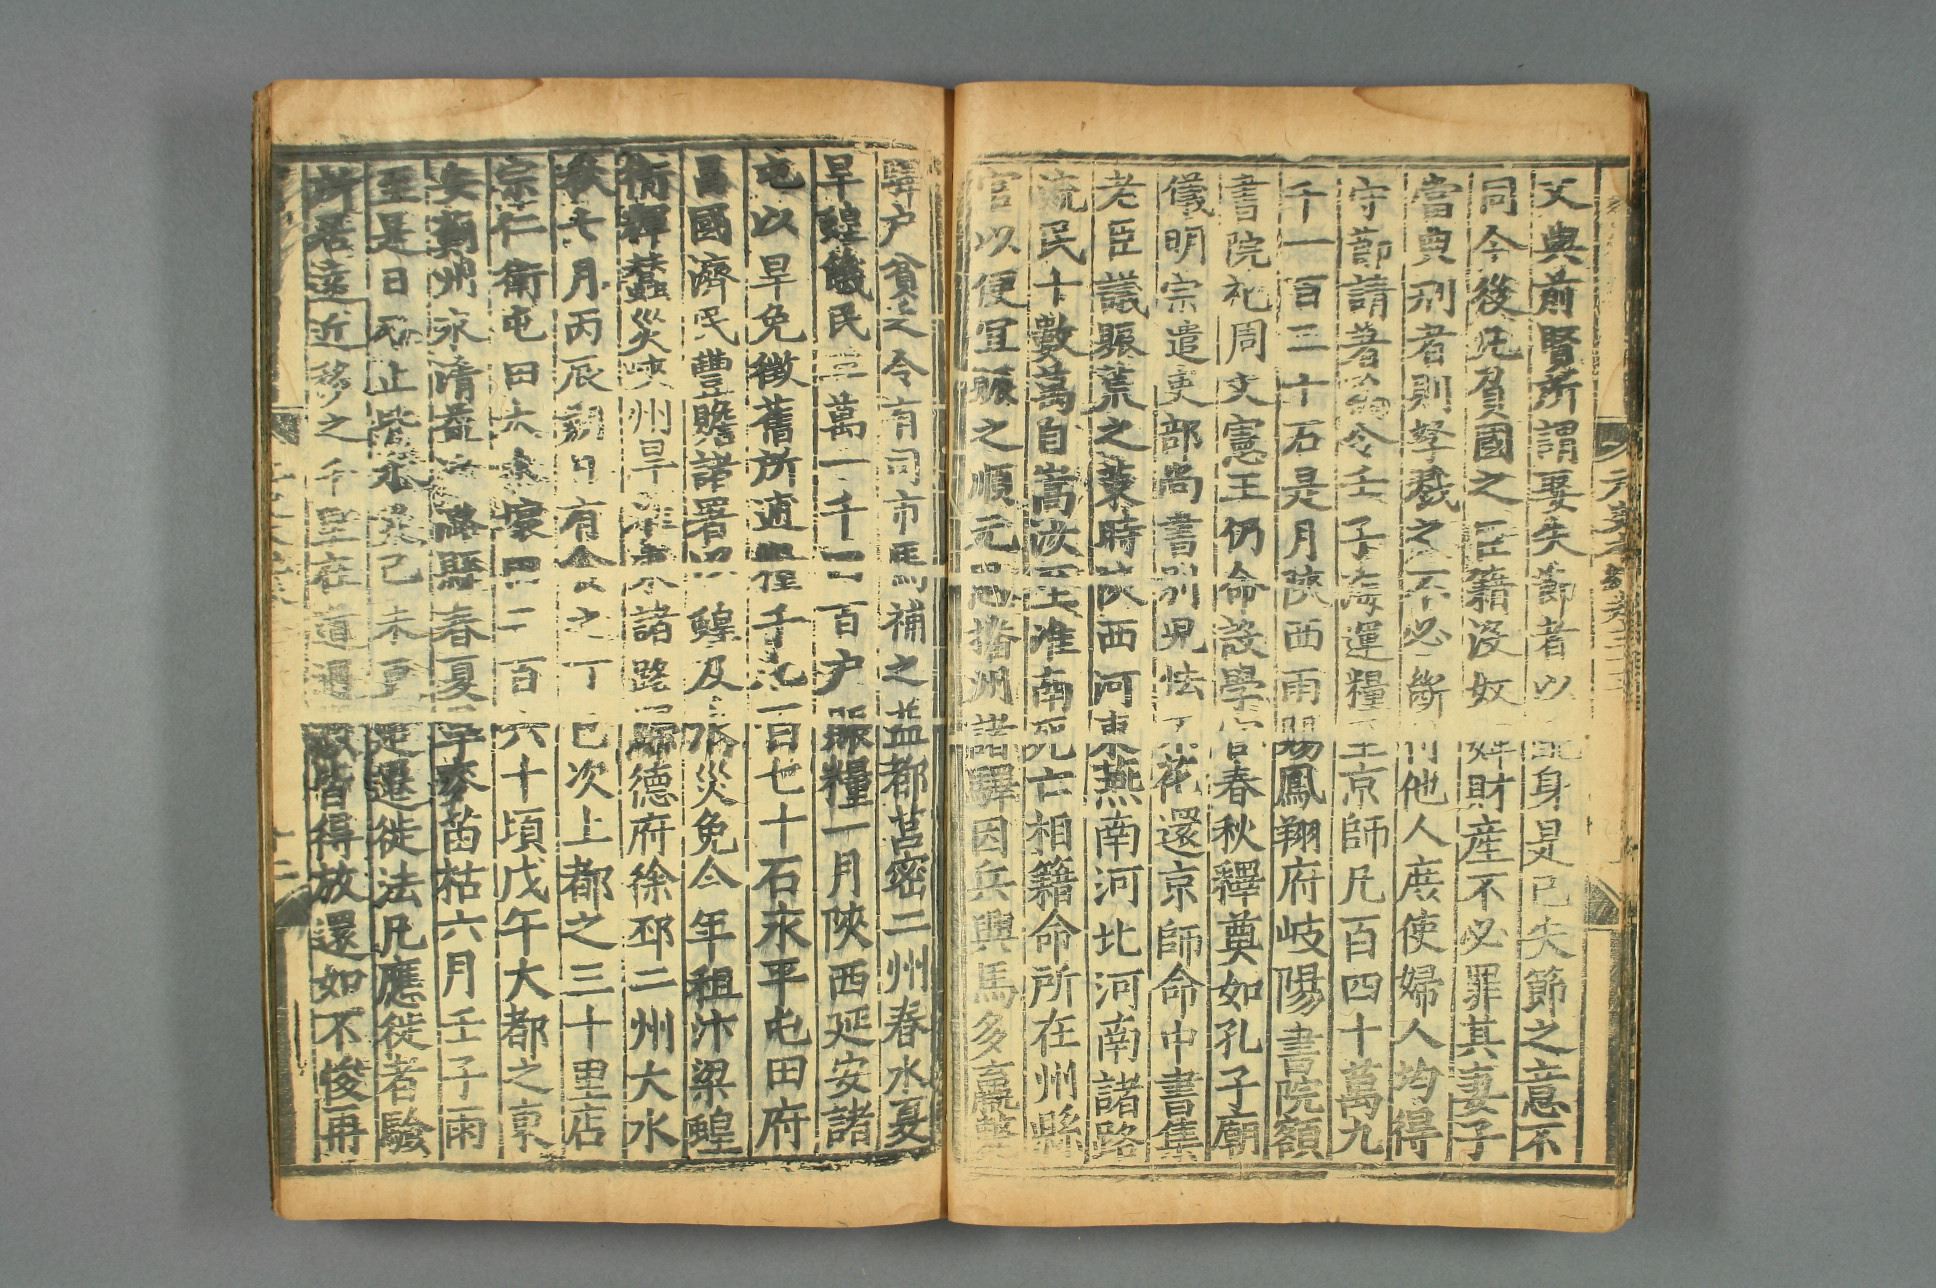 父典前賢所謂娶失節者以配身是已失節之意不
同今後凡負國之臣籍沒奴婢財產不必罪其妻子
當典刑者則孥戮之不必斷付他人庶使婦人均得
守節請著為令壬子海運糧至京師凡百四十萬九
千一百三十石是月陝西雨賜鳳翔府岐陽書院額
書院祀周文憲王仍命設學官春秋釋奠如孔子廟
儀明宗遣吏部尚書別兒怯不花還京師命中書集
老臣議賑荒之策時陝西河東燕南河北河南諸路
流民十數萬自嵩汝至淮南死亡相籍命所在州縣
官以便宜賑之順元思播州諸驛因兵興馬多羸斃
驛戶貧乏令有司市馬補之益都莒密二州春水夏
旱蝗饑民三萬一千四百戶賑糧一月陝西延安諸
屯以旱免徵舊所逋糧千九百七十石永平屯田府
昌國濟民豐贍諸署以蝗及水災免今年租汴梁蝗
衛輝蠶災峽州旱淮東諸路歸德府徐邳二州大水
秋七月丙辰朔日有食之丁巳次上都之三十里店
宗仁衛屯田大寒隕田二百六十頃戊午大都之東
安薊州永清益津潞縣春夏旱麥苗枯六月壬子雨
至是日乃止皆水災己未更定遷徙法凡應徙者驗
所居遠近移之千里在道遇赦皆得放還如不悛再
元史本紀卷三十三